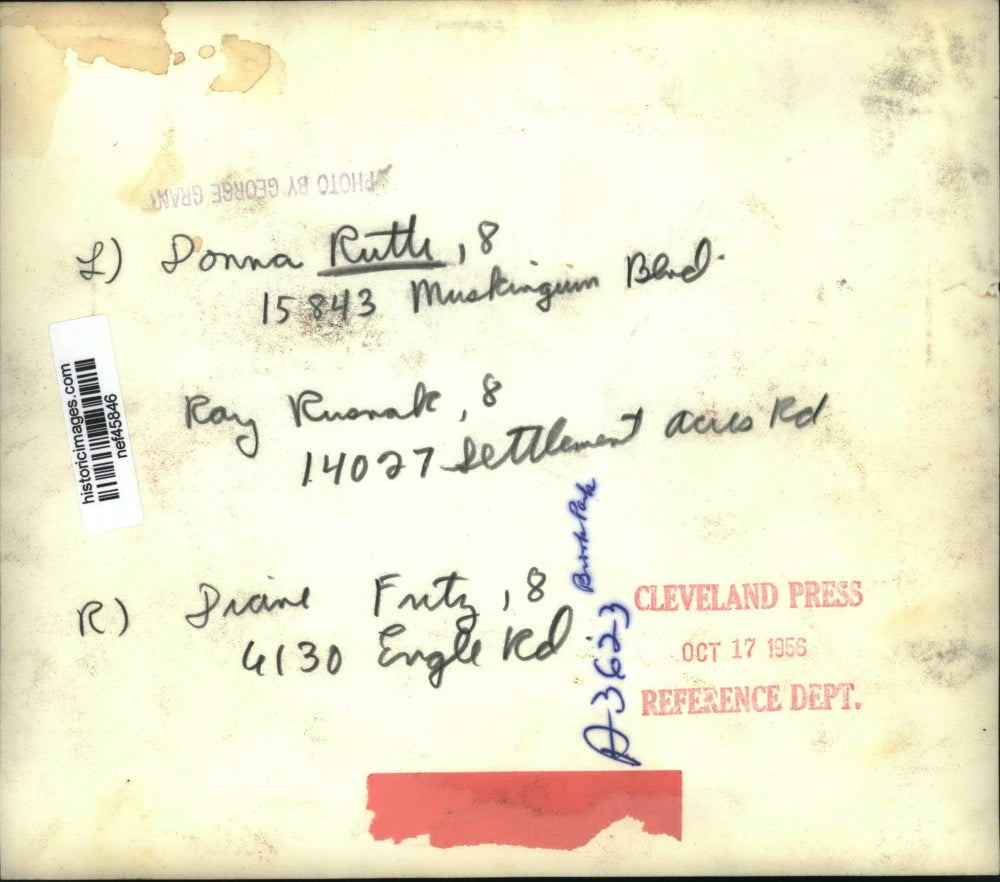 PHOTO BY GEORGE GRANT
L) Donna Ruth, 8
15843 Muskingum Blvd.
historicimages.com
nef45846
Ray Rusnak, 8
14027 Settlement Acres Rd
Brook Park
A-3623
R) Diane Fritz, 8
6130 Engle Rd
CLEVELAND PRESS
OCT 17 1956
REFERENCE DEPT.